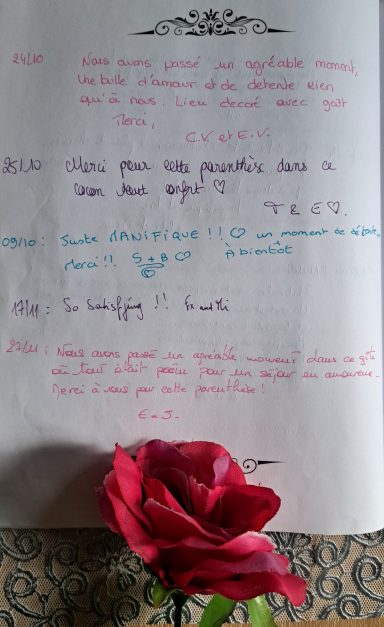 24/10 Nous avons passé un agréable moment,
Une bulle d'amour et de detente rien
qu'à nous. Lieu decoré avec goût
Merci,
C.V. et E.V.
25/10 Merci pour cette parenthèse dans ce
cocon tout confort ♡
T & E ♡.
09/10 : Juste MANIFIQUE !! ♡ un moment de
Merci !! S + B ♡ À bientôt
17/11 : So Satisfying !! Ex and Mi
27/11 : Nous avons passé un agréable moment dans ce gîte
où tout était pour un séjour en amoureux.
Merci à vous pour cette parenthèse !
E & J.